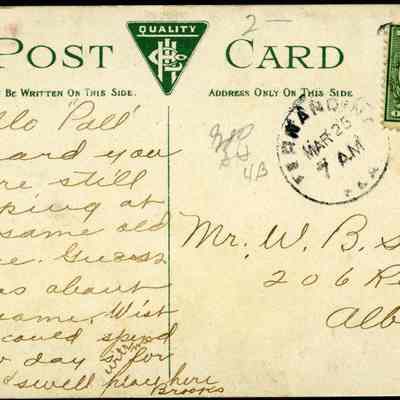 POST CARD
QUALITY
2-
BE WRITTEN ON THIS SIDE.
ADDRESS ONLY ON THIS SIDE.
llo "Pall"
eard you
re still
ping at
same old
e. Guess
as about
same. Wish
could spend
day with for
swell place here
Brooks
4B
FERNANDINA
MAR 25
7 AM
FLA
Mr. W. B. S
206 R
Alb